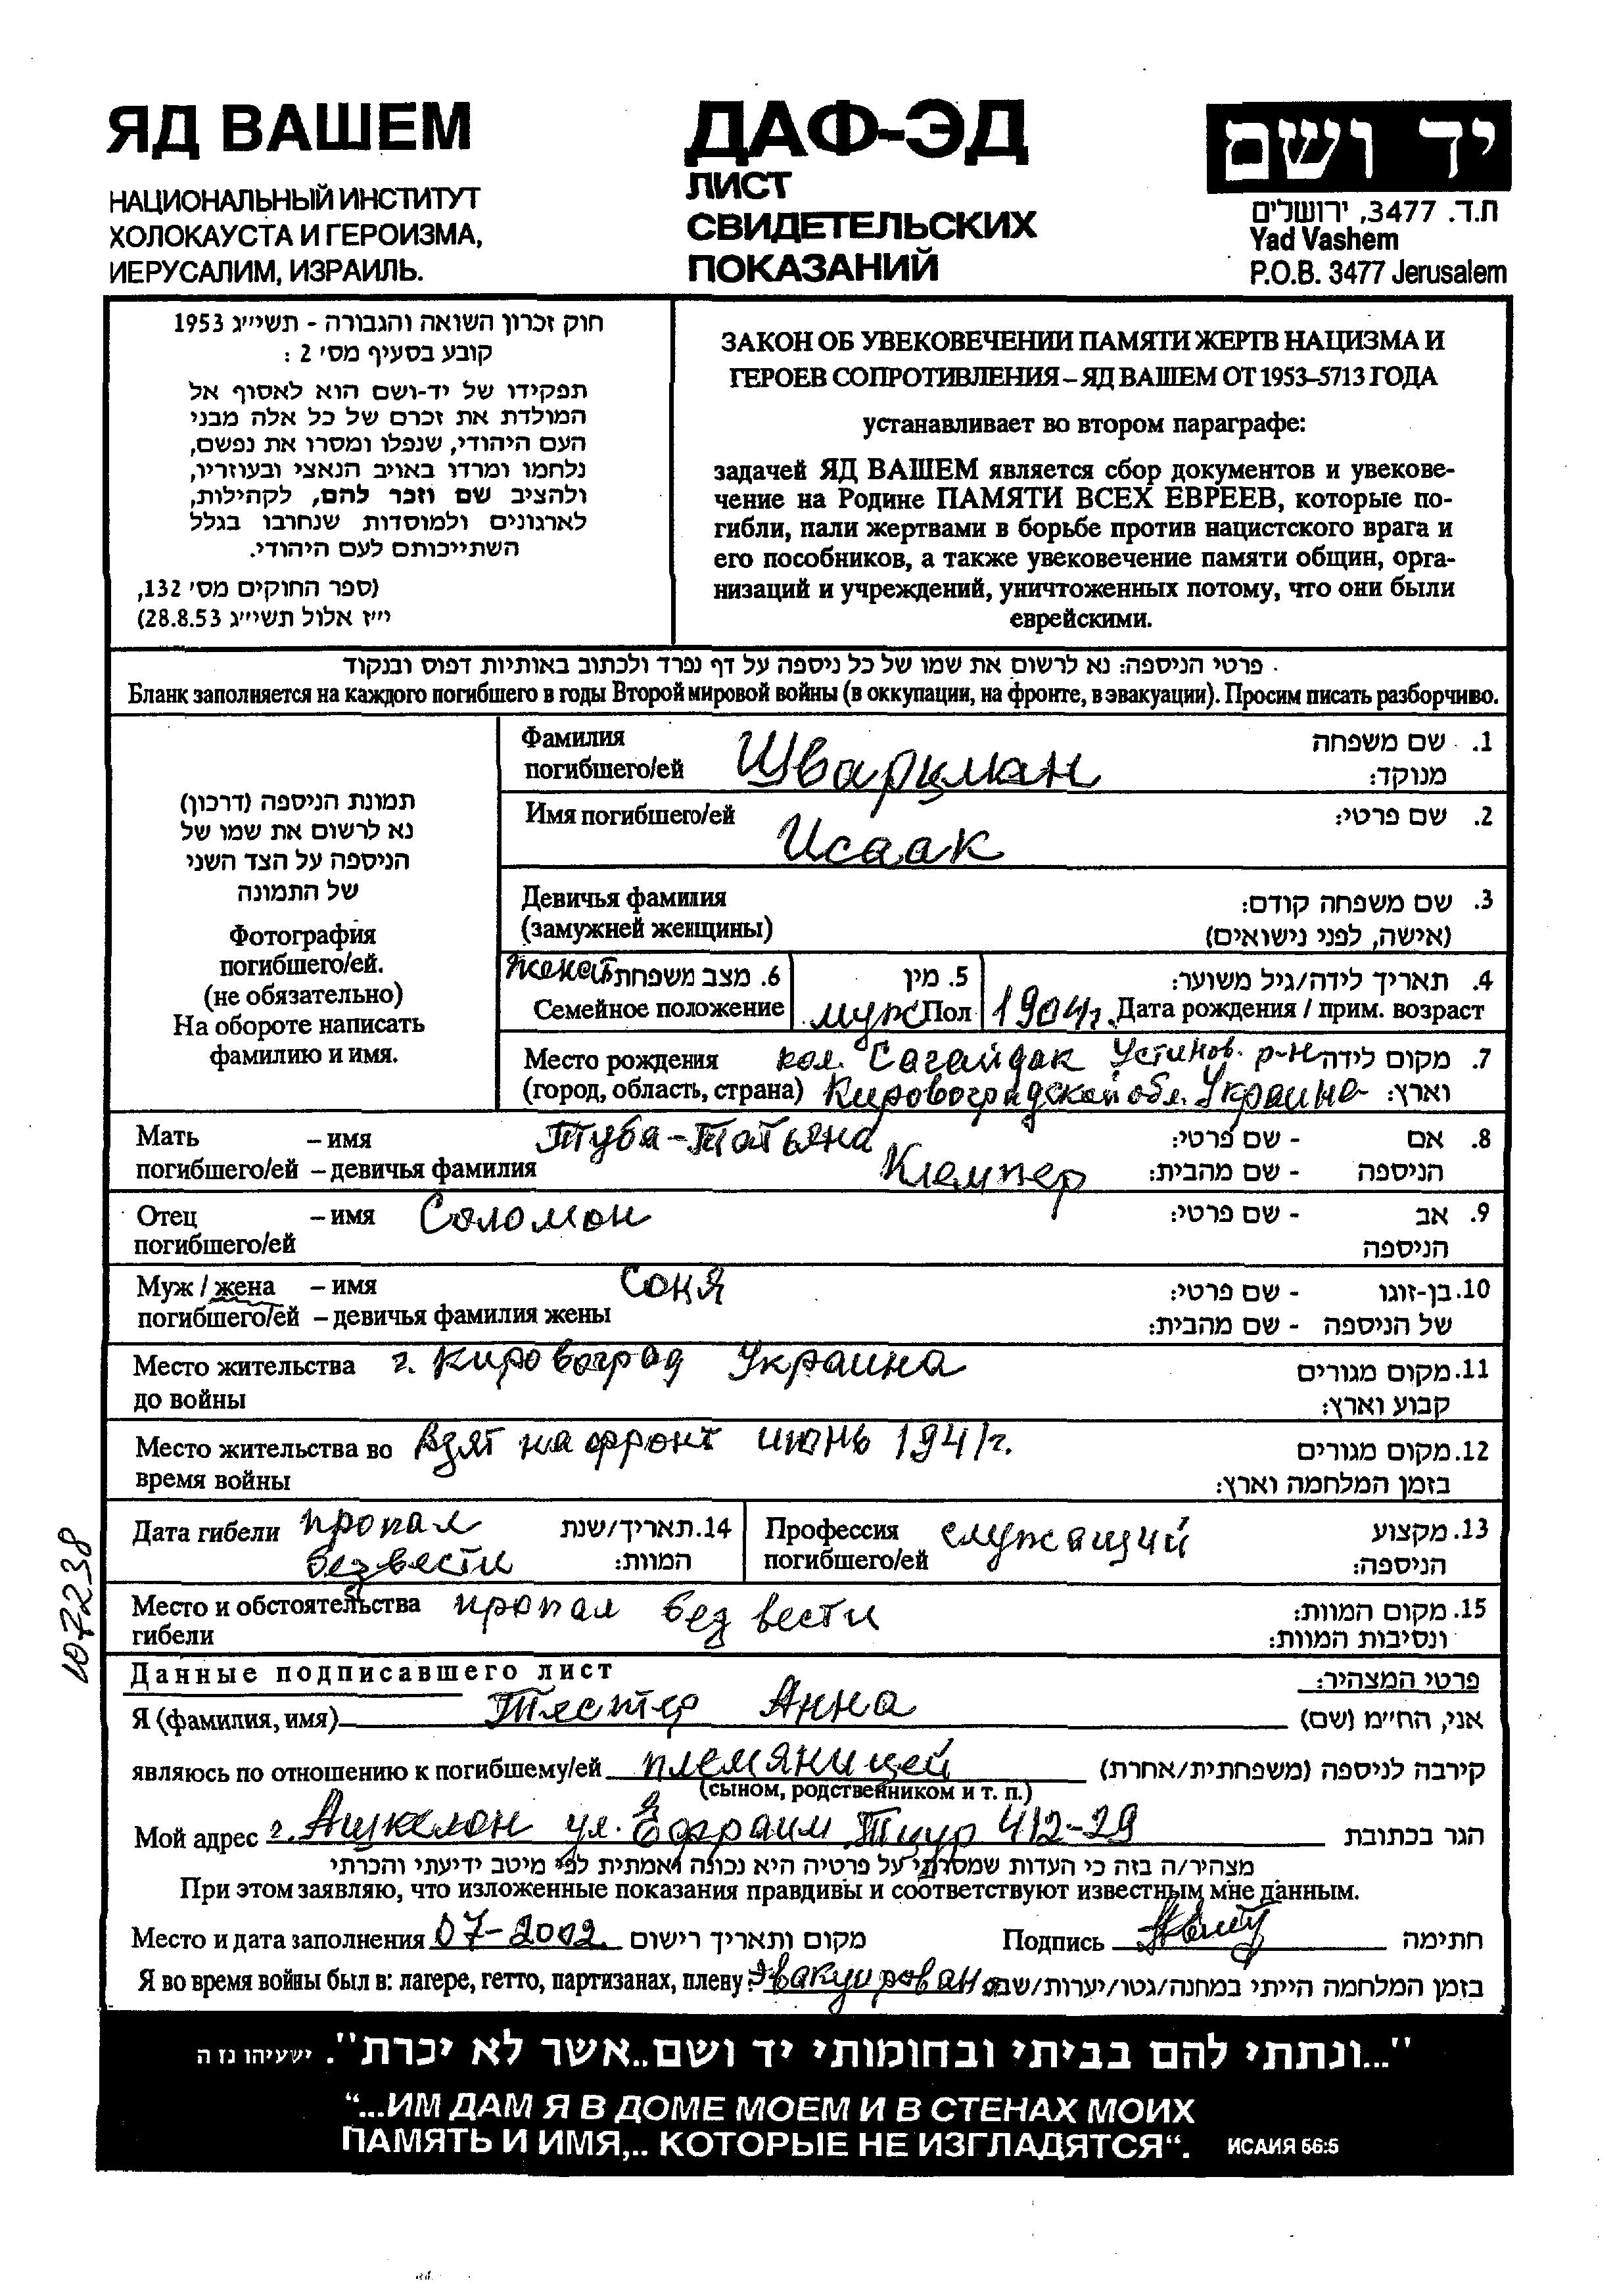 ЯД ВАШЕМ
НАЦИОНАЛЬНЫЙ ИНСТИТУТ
ХОЛОКАУСТА И ГЕРОИЗМА,
ИЕРУСАЛИМ, ИЗРАИЛЬ.
ДАФ-ЭД
ЛИСТ
СВИДЕТЕЛЬСКИХ
ПОКАЗАНИЙ
יד ושם
ת.ד. 3477, ירושלים
Yad Vashem
P.O.B. 3477 Jerusalem
חוק זכרון השואה והגבורה - תשי״ג 1953
קובע בסעיף מס׳ 2 :
תפקידו של יד-ושם הוא לאסוף אל
המולדת את זכרם של כל אלה מבני
העם היהודי, שנפלו ומסרו את נפשם,
נלחמו ומרדו באויב הנאצי ובעוזריו,
ולהציב שם וזכר להם, לקהילות,
לארגונים ולמוסדות שנחרבו בגלל
השתייכותם לעם היהודי.
(ספר החוקים מס׳ 132,
י״ז אלול תשי״ג 28.8.53)
ЗАКОН ОБ УВЕКОВЕЧЕНИИ ПАМЯТИ ЖЕРТВ НАЦИЗМА И
ГЕРОЕВ СОПРОТИВЛЕНИЯ – ЯД ВАШЕМ ОТ 1953–5713 ГОДА
устанавливает во втором параграфе:
задачей ЯД ВАШЕМ является сбор документов и увекове-
чение на Родине ПАМЯТИ ВСЕХ ЕВРЕЕВ, которые по-
гибли, пали жертвами в борьбе против нацистского врага и
его пособников, а также увековечение памяти общин, орга-
низаций и учреждений, уничтоженных потому, что они были
еврейскими.
פרטי הניספה: נא לרשום את שמו של כל ניספה על דף נפרד ולכתוב באותיות דפוס ובנקוד
Бланк заполняется на каждого погибшего в годы Второй мировой войны (в оккупации, на фронте, в эвакуации). Просим писать разборчиво.
תמונת הניספה (דרכון)
נא לרשום את שמו של
הניספה על הצד השני
של התמונה
Фотография
погибшего/ей.
(не обязательно)
На обороте написать
фамилию и имя.
Фамилия Шварцман 1. שם משפחה
погибшего/ей מנוקד:
Имя погибшего/ей Исаак 2. שם פרטי:
Девичья фамилия 3. שם משפחה קודם:
(замужней женщины) (אישה, לפני נישואים)
женат 6. מצב משפחתי 5. מין 4. תאריך לידה/גיל משוער:
Семейное положение муж Пол 1904г. Дата рождения / прим. возраст
Место рождения кол. Сагайдак Устинов. р-н 7. מקום לידה
(город, область, страна) Кировоградской обл. Украина וארץ:
Мать – имя Туба-Татьяна 8. אם - שם פרטי:
погибшего/ей – девичья фамилия Клемпер הניספה - שם מהבית:
Отец – имя Соломон 9. אב - שם פרטי:
погибшего/ей הניספה
Муж / жена – имя Соня 10. בן-זוגו - שם פרטי:
погибшего/ей – девичья фамилия жены של הניספה - שם מהבית:
Место жительства г. Кировоград Украина 11. מקום מגורים
до войны קבוע וארץ:
Место жительства во взят на фронт июнь 1941г. 12. מקום מגורים
время войны בזמן המלחמה וארץ:
Дата гибели пропал 14. תאריך/שנת Профессия служащий 13. מקצוע
без вести המוות: погибшего/ей הניספה:
Место и обстоятельства пропал без вести 15. מקום המוות:
гибели ונסיבות המוות:
107238
Данные подписавшего лист פרטי המצהיר:
Я (фамилия, имя) Тестер Анна אני, הח״מ (שם)
являюсь по отношению к погибшему/ей племяницей קירבה לניספה (משפחתית/אחרת)
(сыном, родственником и т. п.)
Мой адрес г. Ашкелон ул. Ефраим Тцур 412-29 הגר בכתובת
מצהיר/ה בזה כי העדות שמסרתי על פרטיה היא נכונה ואמתית לפי מיטב ידיעתי והכרתי
При этом заявляю, что изложенные показания правдивы и соответствуют известным мне данным.
Место и дата заполнения 07-2002 מקום ותאריך רישום Подпись חתימה
Я во время войны был в: лагере, гетто, партизанах, плену: эвакуирована בזמן המלחמה הייתי במחנה/גטו/יערות/שבי
"...ונתתי להם בביתי ובחומותי יד ושם..אשר לא יכרת". ישעיהו נז ה
“...ИМ ДАМ Я В ДОМЕ МОЕМ И В СТЕНАХ МОИХ
ПАМЯТЬ И ИМЯ,.. КОТОРЫЕ НЕ ИЗГЛАДЯТСЯ“. ИСАИЯ 56:5